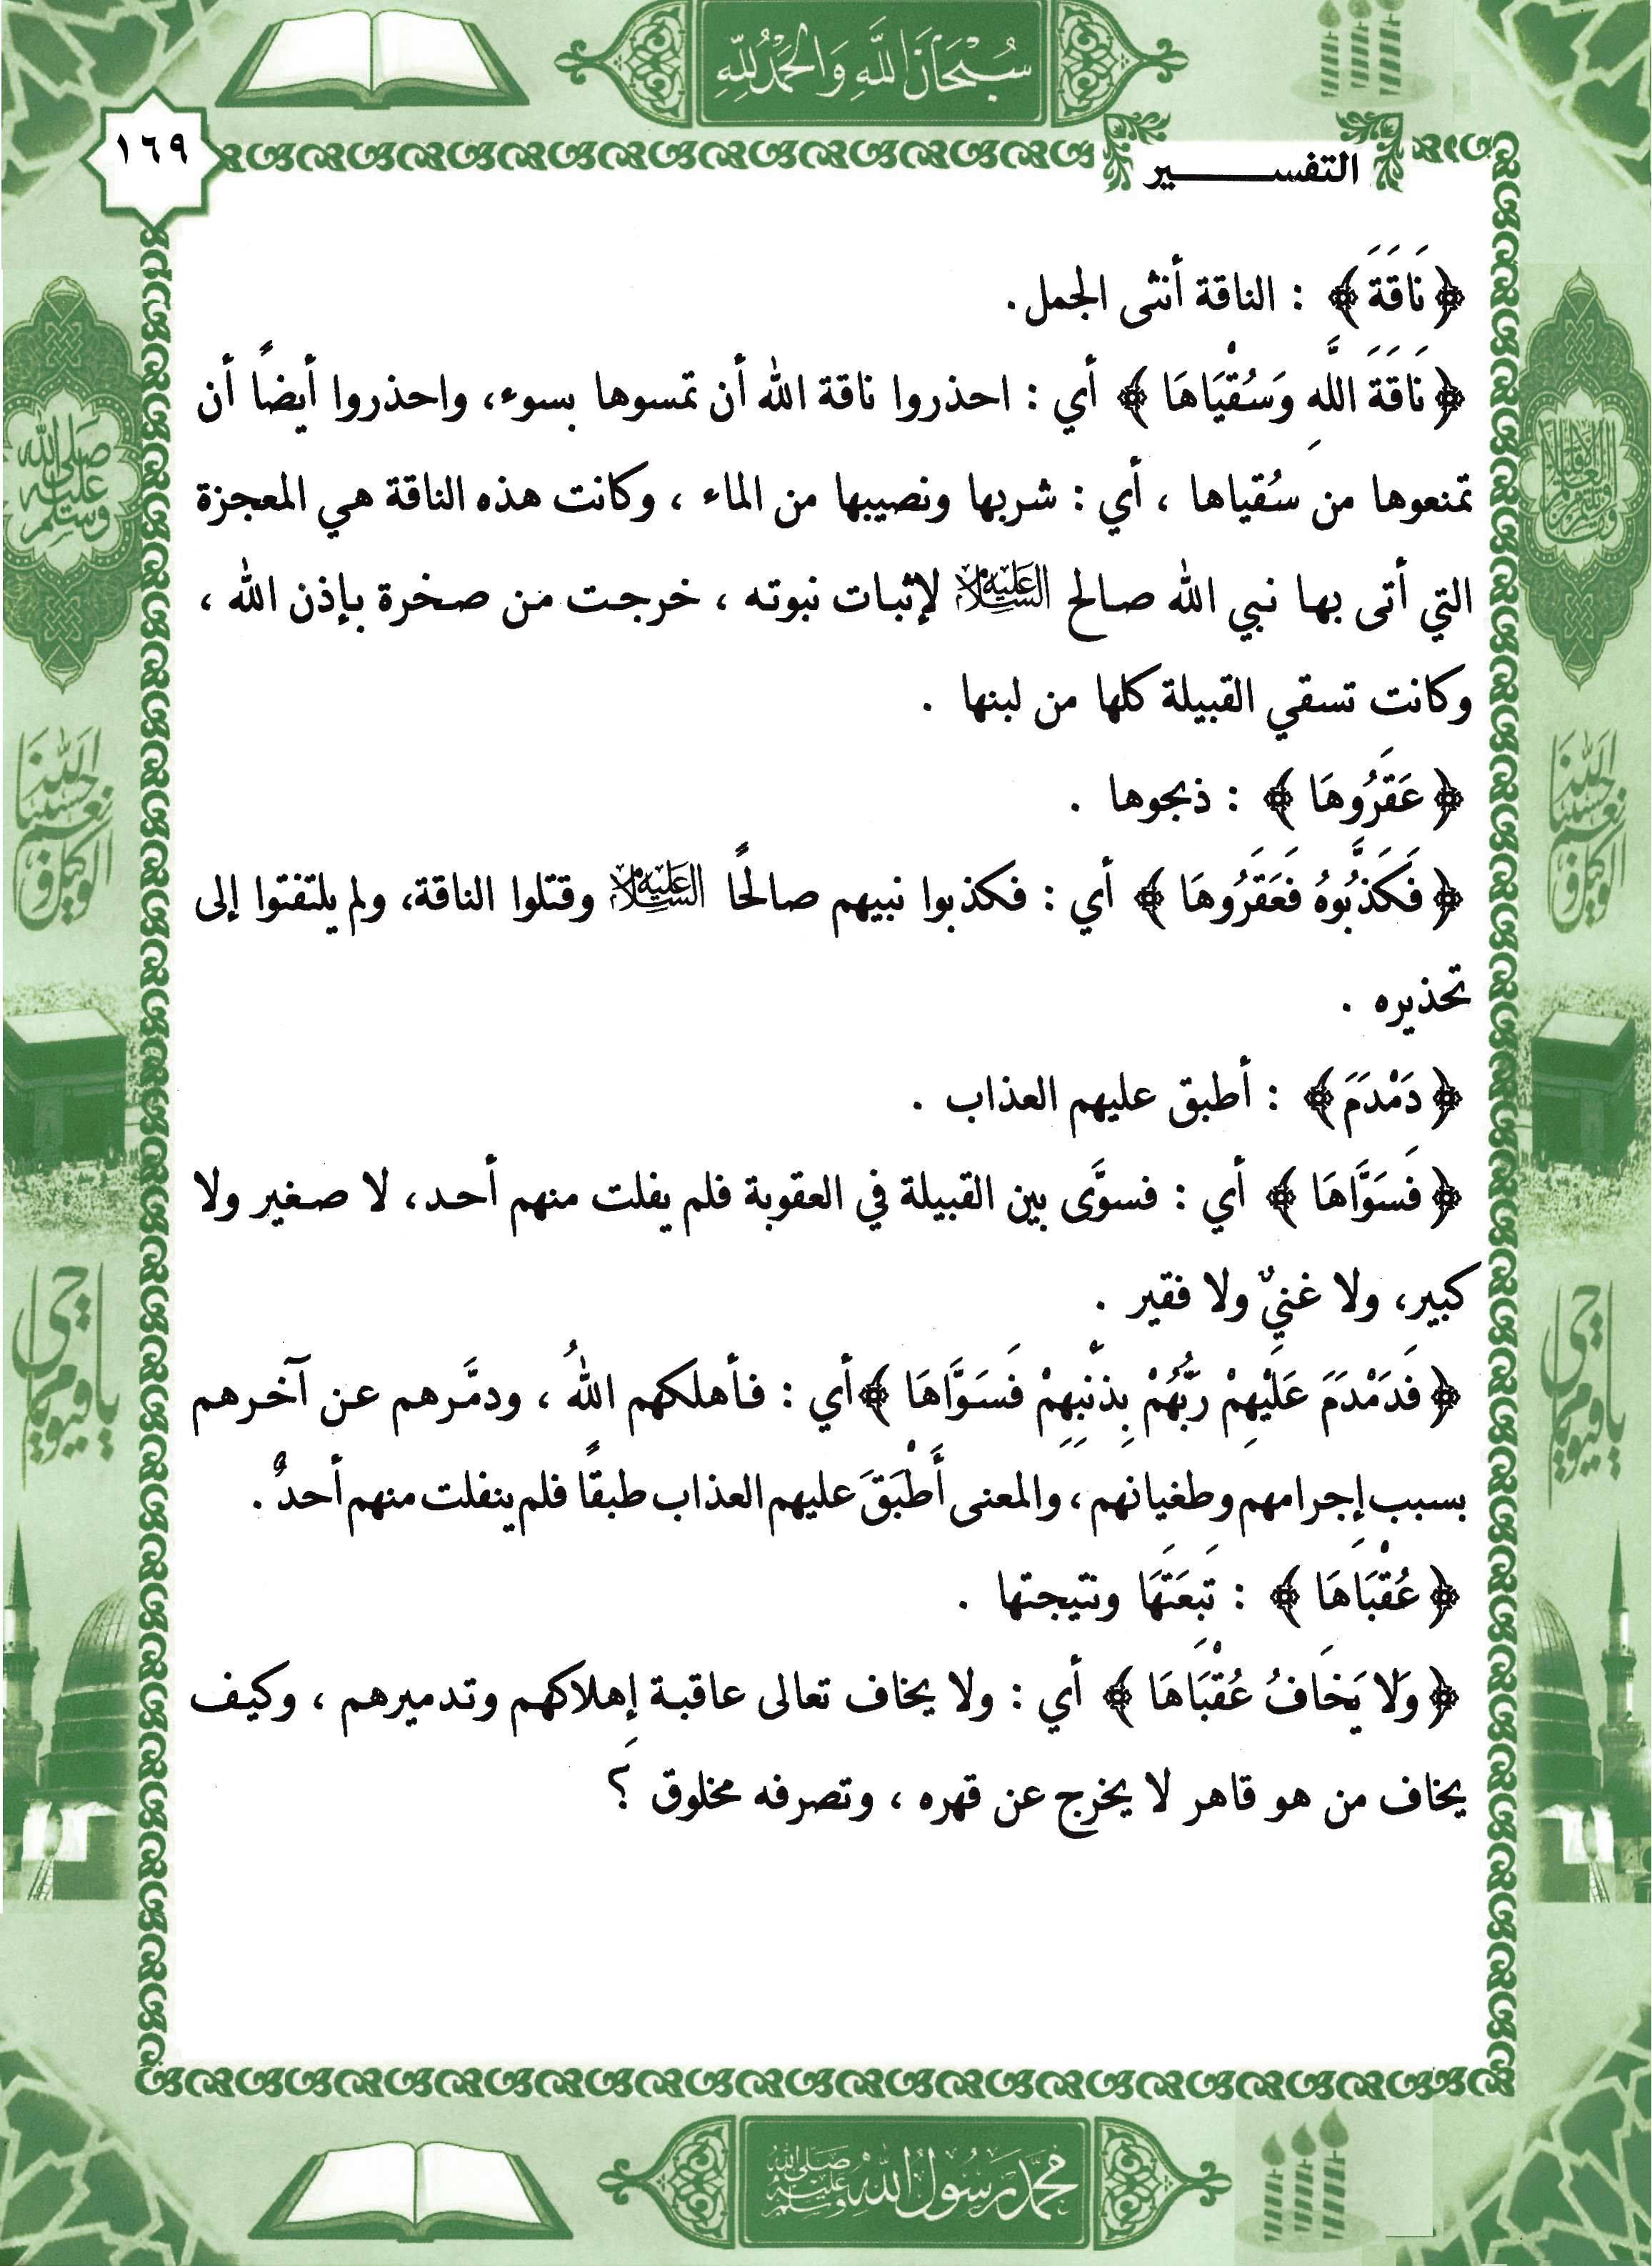 سُبْحَانَ اللَّهِ وَالْحَمْدُ لِلَّهِ
١٦٩
التفســــــير
﴿نَاقَةَ﴾ : الناقة أنثى الجمل.
﴿نَاقَةَ اللَّهِ وَسُقْيَاهَا ﴾ أي : احذروا ناقة الله أن تمسوها بسوء، واحذروا أيضاً أن
تمنعوها من سُقياها ، أي : شربها ونصيبها من الماء ، وكانت هذه الناقة هي المعجزة
التي أتى بها نبي الله صالح عليه السلام لإثبات نبوته ، خرجت من صخرة بإذن الله ،
وكانت تسقي القبيلة كلها من لبنها .
﴿عَقَرُوهَا ﴾ : ذبحوها .
﴿فَكَذَّبُوهُ فَعَقَرُوهَا ﴾ أي : فكذبوا نبيهم صالحًا عليه السلام وقتلوا الناقة، ولم يلتفتوا إلى
تحذيره .
﴿دَمْدَمَ﴾ : أطبق عليهم العذاب .
﴿فَسَوَّاهَا ﴾ أي : فسوَّى بين القبيلة في العقوبة فلم يفلت منهم أحد، لا صغير ولا
كبير، ولا غنيٌ ولا فقير .
﴿فَدَمْدَمَ عَلَيْهِمْ رَبُّهُمْ بِذَنْبِهِمْ فَسَوَّاهَا ﴾أي : فأهلكهم اللهُ ، ودمَّرهم عن آخرهم
بسبب إجرامهم وطغيانهم ، والمعنى أَطْبَقَ عليهم العذاب طبقًا فلم ينفلت منهم أحدٌ .
﴿عُقْبَاهَا ﴾ : تَبِعَتَهَا ونتيجتها .
﴿وَلَا يَخَافُ عُقْبَاهَا ﴾ أي : ولا يخاف تعالى عاقبة إِهلاكهم وتدميرهم ، وكيف
يخاف من هو قاهر لا يخرج عن قهره ، وتصرفه مخلوق ؟
صلى الله عليه وسلم
حسبنا الله ونعم الوكيل
يا حي يا قيوم
محمد رسول الله صلى الله عليه وسلم